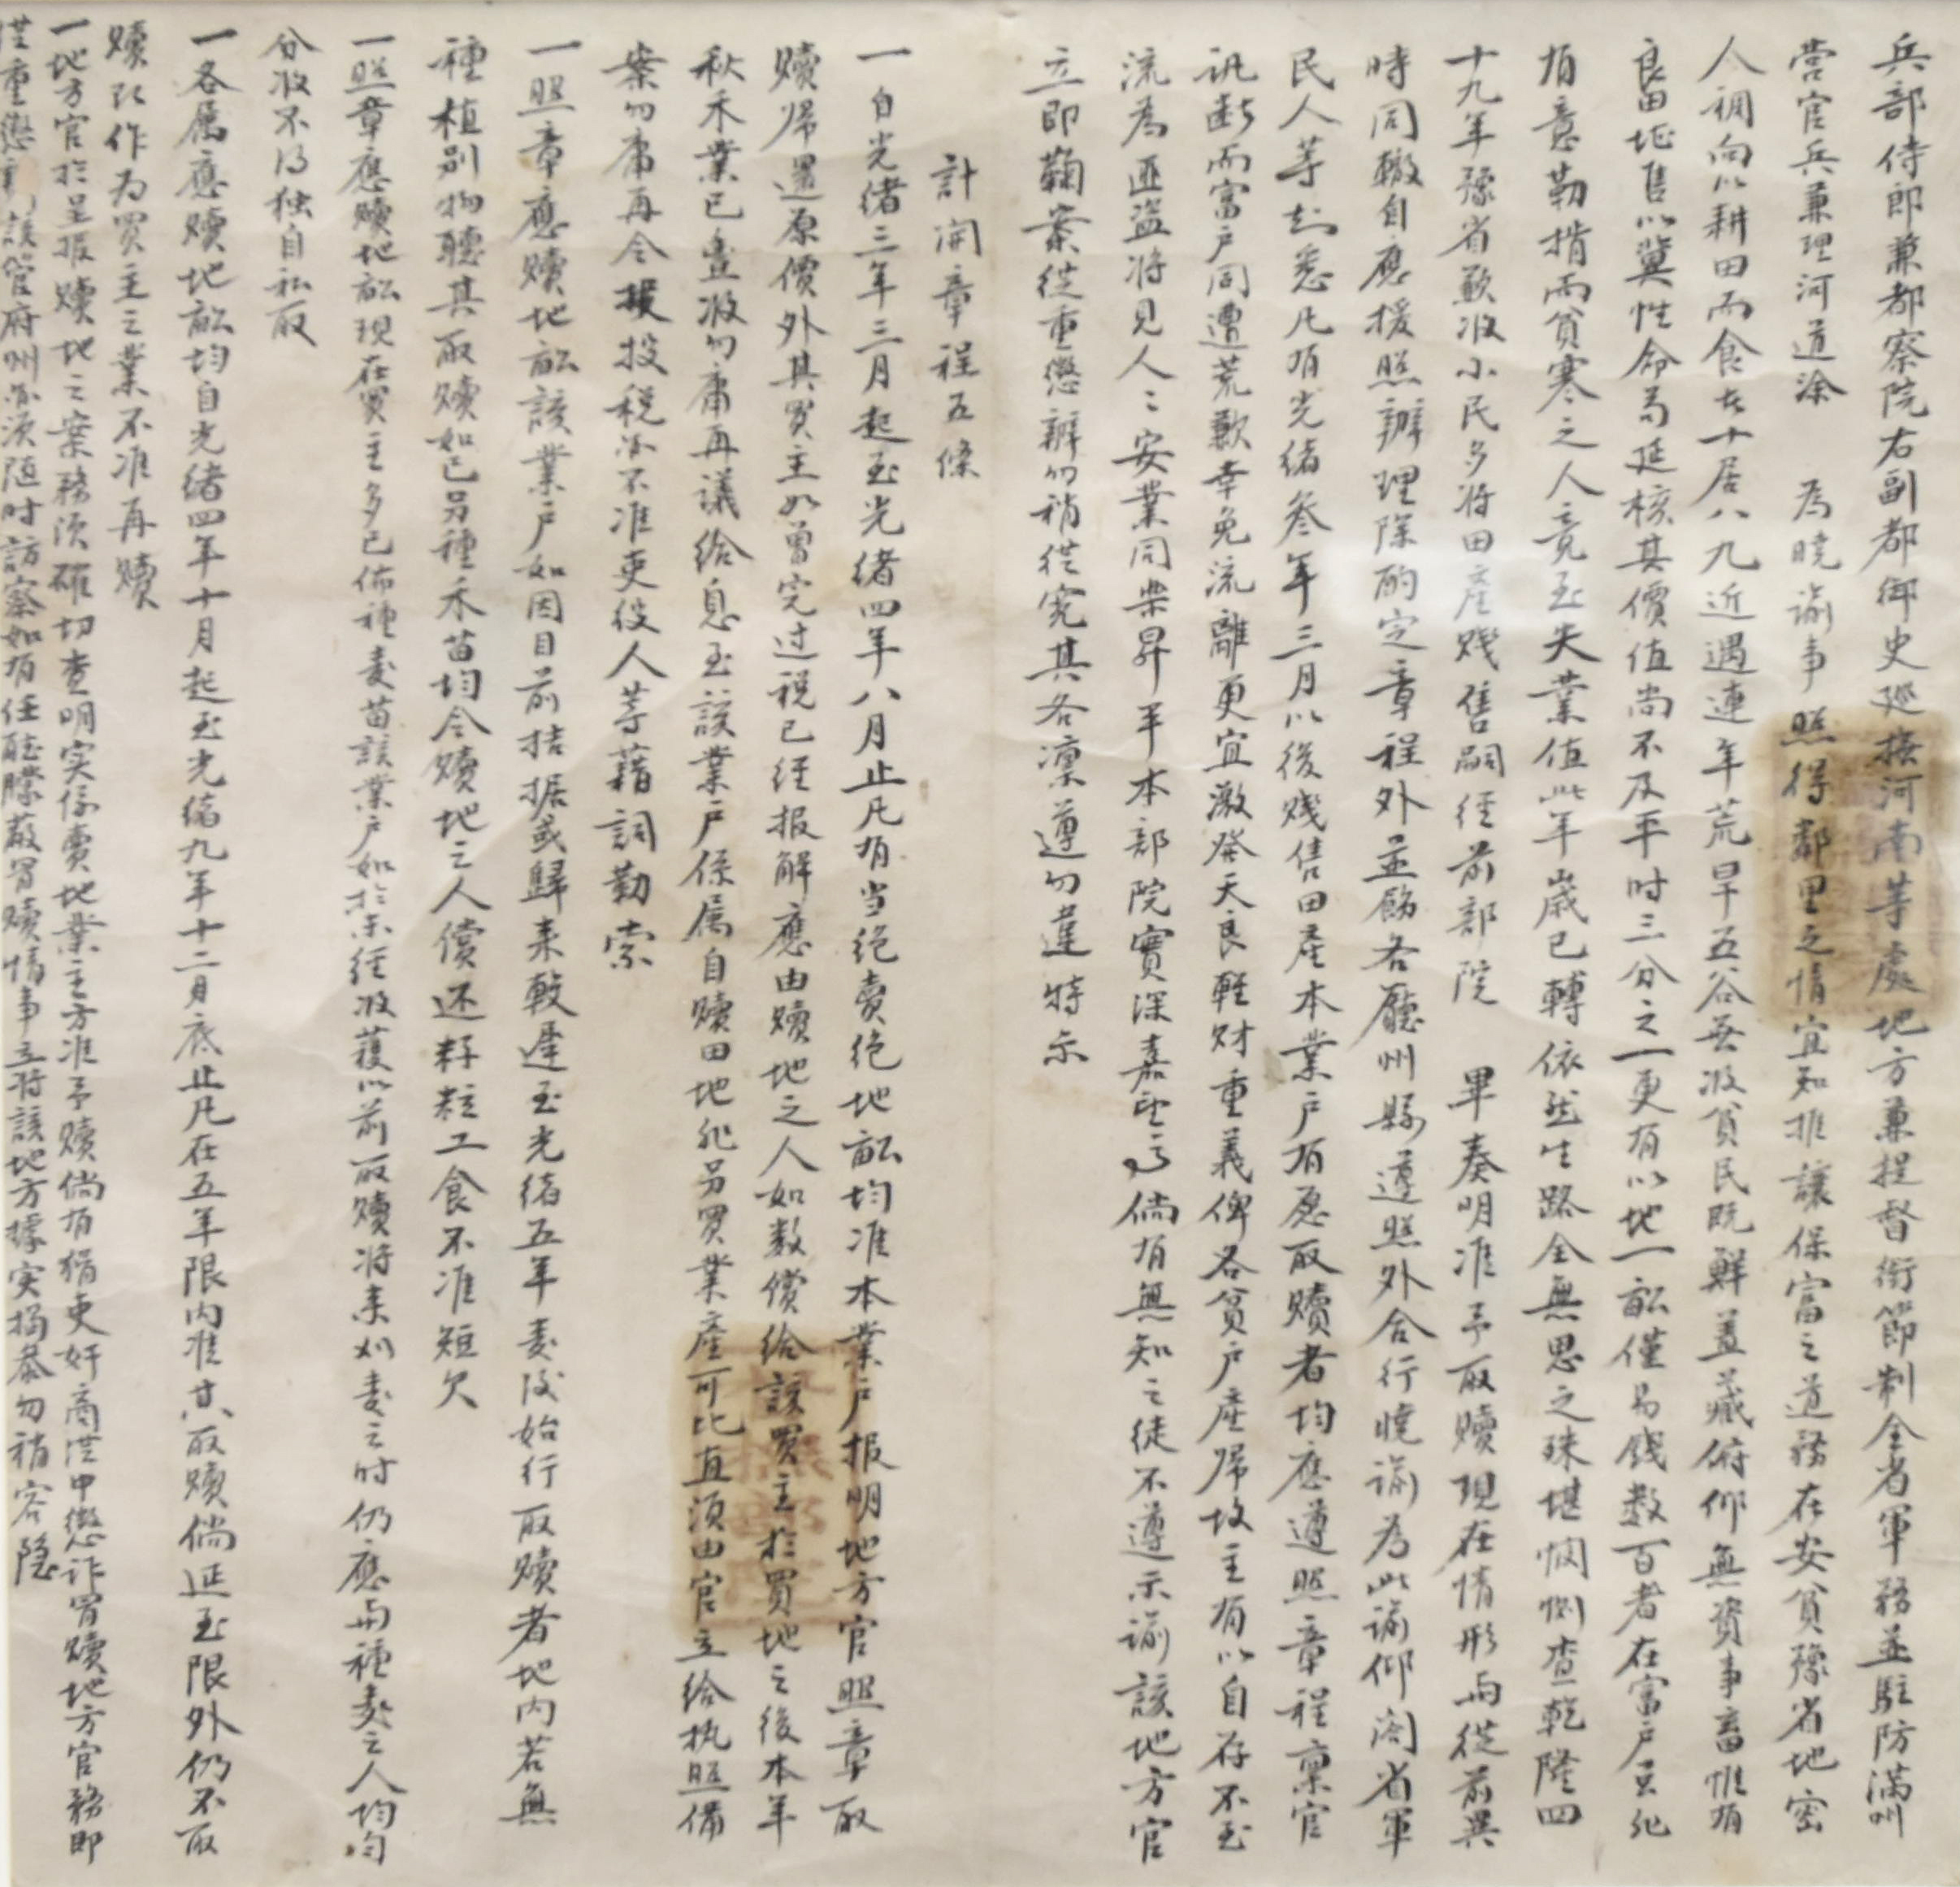 兵部侍郎兼都察院右副都御史巡撫河南等處地方兼提督銜節制全省軍務並駐防滿州
营官兵兼理河道涂 為曉諭事照得鄰里之情宜知推讓保富之道務在安貧豫省地密
人稠向以耕田而食者十居八九近遇連年荒旱五谷無收貧民既鮮蓋藏俯仰無資事畜惟有
良田地售以冀性命苟延核其價值尚不及平时三分之一更有以地一畝僅易錢数百者在富户豈能
有意勒掯而貧寒之人竟至失業值此年歲已轉依然生路全無思之殊堪憫惻查乾隆四
十九年豫省歉收小民多将田產賤售嗣经前部院 畢奏明准予取贖現在情形与從前異
時同轍自應援照辦理除酌定章程外並飭各廳州縣遵照外合行曉諭為此諭仰闔省軍
民人等知悉凡有光绪叁年三月以後賤售田產本業户有愿取贖者均應遵照章程禀官
訊断而富户同遭荒歉幸免流離更宜激發天良輕财重義俾各貧户產歸故主有以自存不至
流為匪盗将見人〻安業同樂昇平本部院實深嘉 倘有無知之徒不遵示諭該地方官
立即鞫案從重懲辦勿稍從寬其各凛遵勿違特示
計開章程五條
一自光绪三年三月起至光绪四年八月止凡有当绝賣绝地畝均准本業户报明地方官照章取
贖歸還原價外其買主如曾完过税已经报解應由贖地之人如数償给該買主於買地之後本年
秋禾業已豊收勿庸再議给息至該業户係属自贖田地非另買業產可比直须由官立给执照備
案勿庸再令投税亦不准吏役人等藉詞勒索
一照章應贖地畝該業户如因目前拮据或歸来較遲至光绪五年麦後始行取贖者地内若無
種植别物聽其取贖如已另種禾苗均令贖地之人償还籽粒工食不准短欠
一照章應贖地畝現在買主多已佈種麦苗該業户如於未经收穫以前取贖将来刈麦之时仍應与種麦之人均匀
分收不得独自私取
一各属應贖地畝均自光绪四年十月起至光绪九年十二月底止凡在五年限内准其取贖倘延至限外仍不取
贖以作为買主之業不准再贖
一地方官於呈报贖地之案務须確切查明实係賣地業主方准予贖倘有猾吏奸商從中慫诈冒贖地方官務即
從重懲 該管府州亦须随时訪察如有任聽朦蔽冒贖情事立将該地方據实揭参勿稍容隐